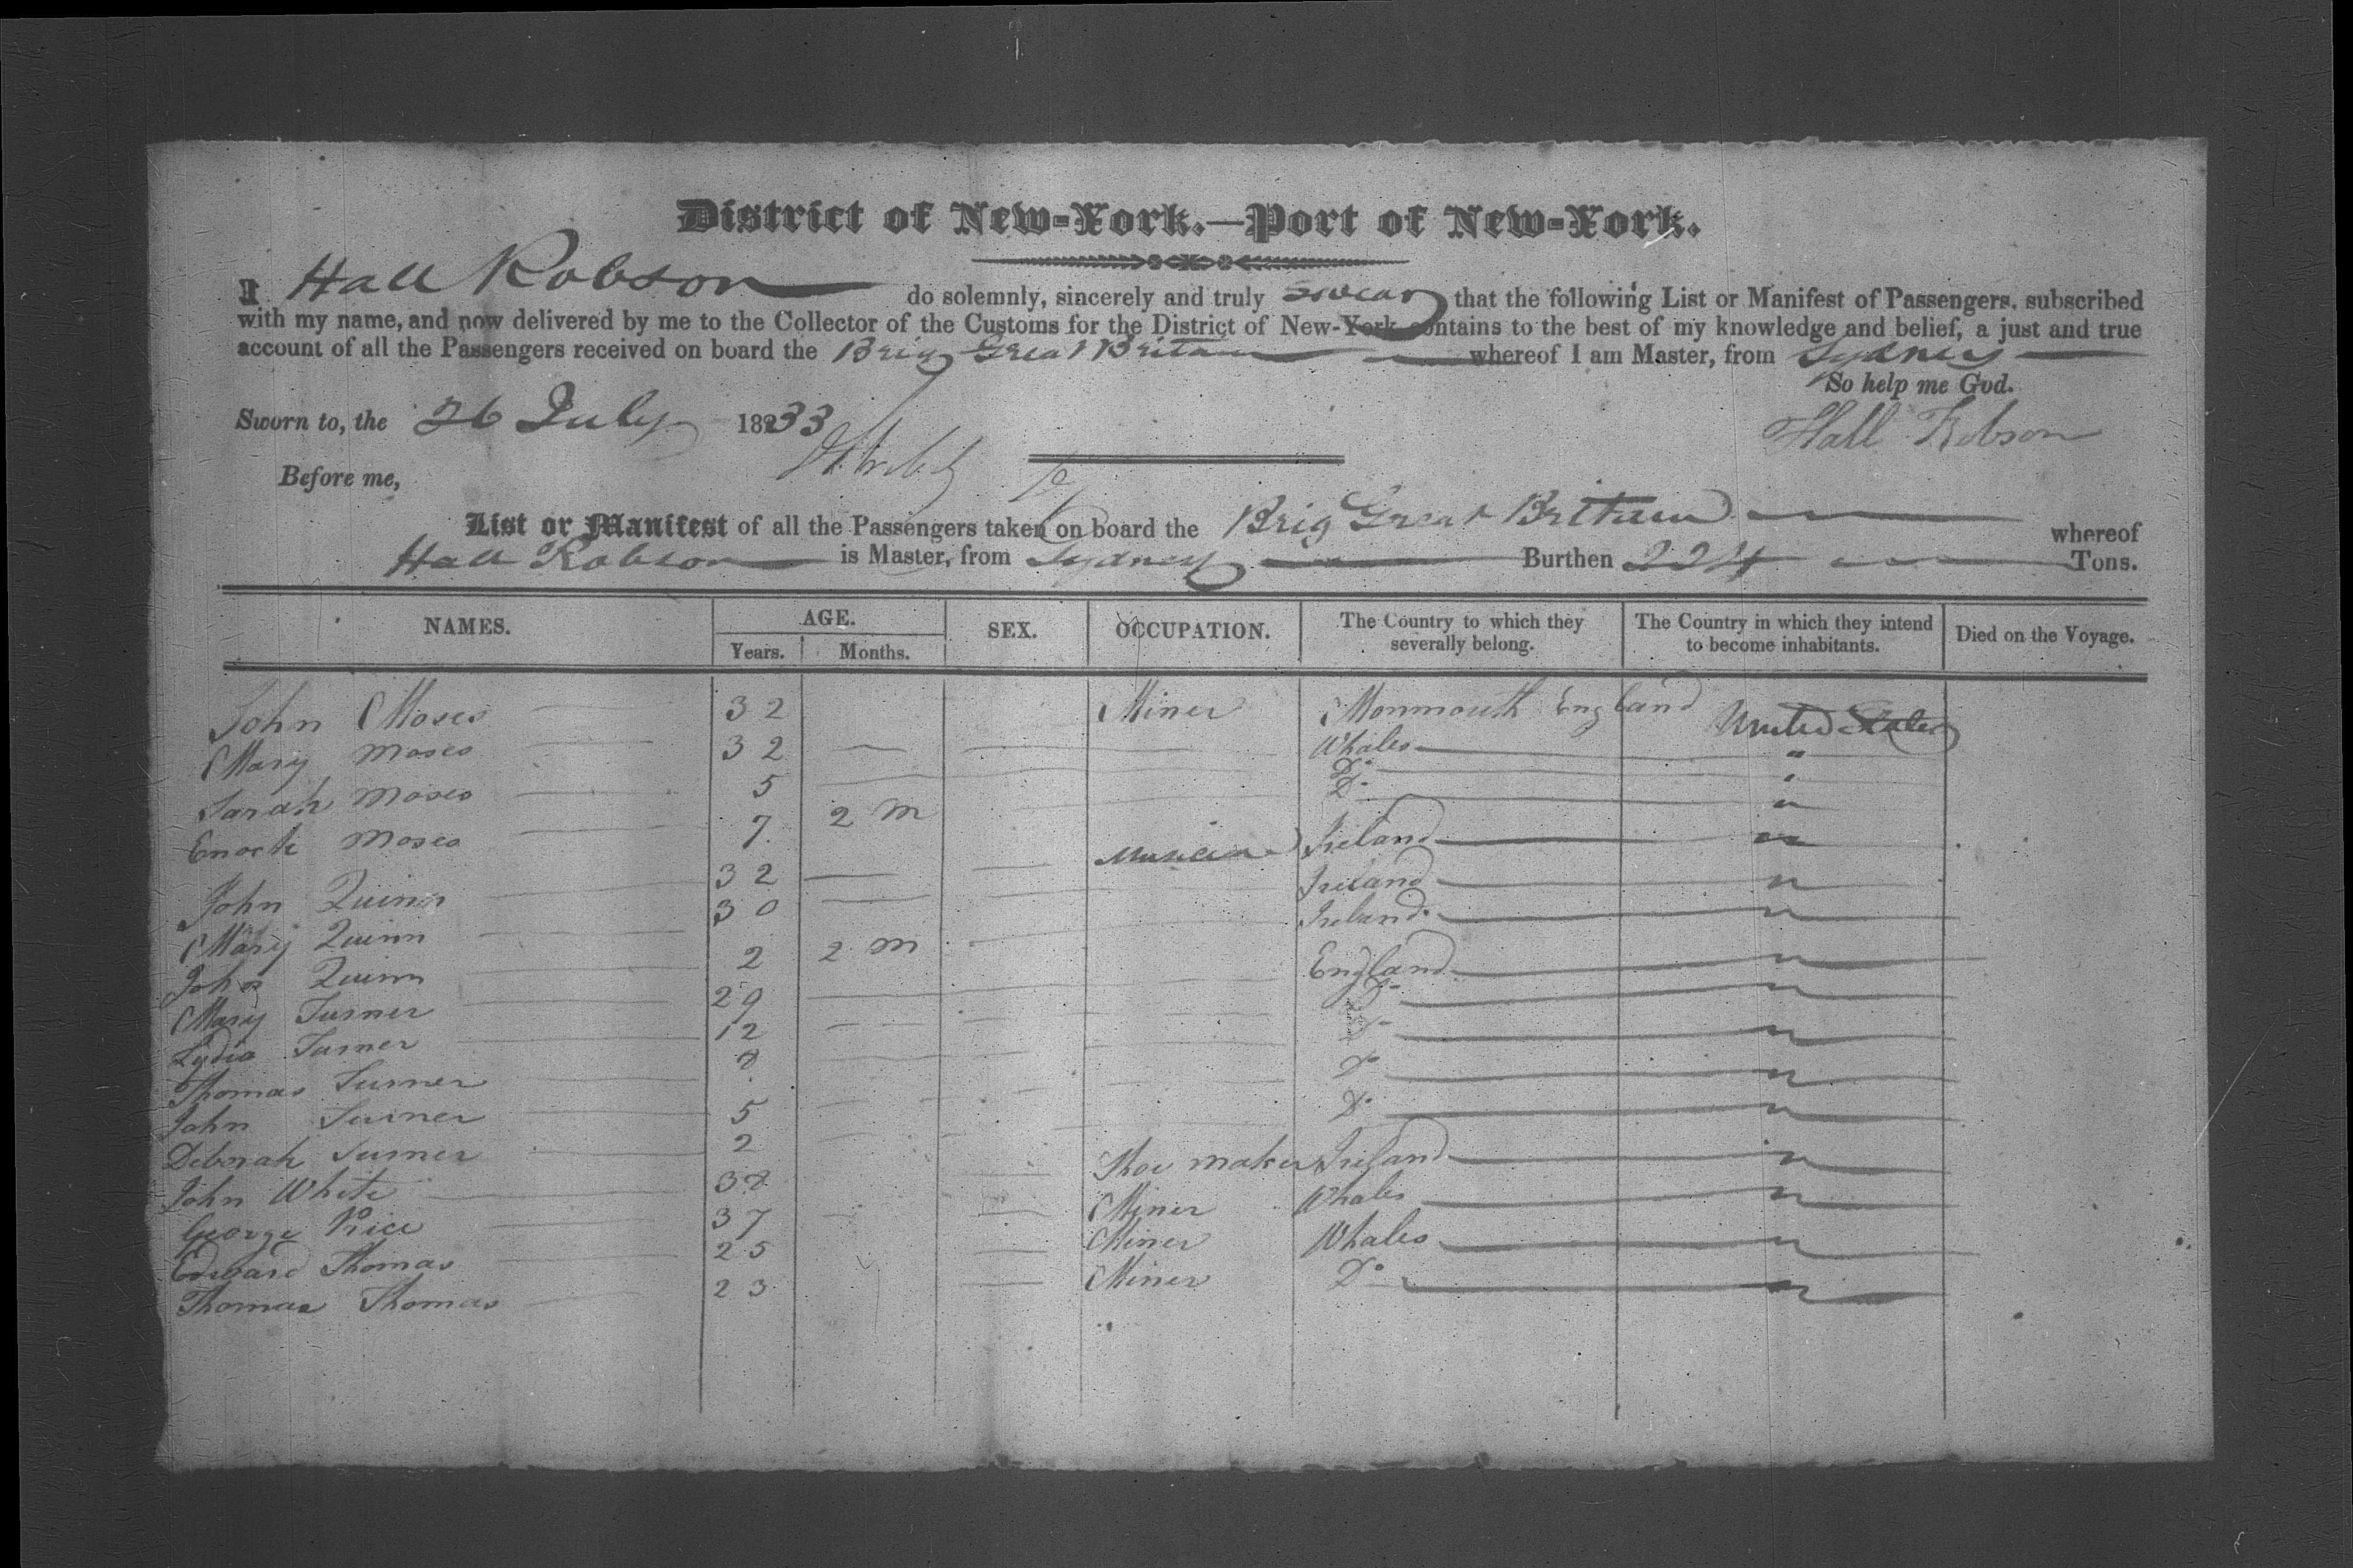 District of New-York.—Port of New-York.
I Hall Robson do solemnly, sincerely and truly swear that the following List or Manifest of Passengers, subscribed
with my name, and now delivered by me to the Collector of the Customs for the District of New-York contains to the best of my knowledge and belief, a just and true
account of all the Passengers received on board the Brig Great Britain whereof I am Master, from Sydney
So help me God.
Sworn to, the 26 July 1833
Hall Robson
Before me,
List or Manifest of all the Passengers taken on board the Brig Great Britain whereof
Hall Robson is Master, from Sydney Burthen 224 Tons.
NAMES. AGE. Years. Months. SEX. OCCUPATION. The Country to which they severally belong. The Country in which they intend to become inhabitants. Died on the Voyage.
John Moses 32 Miner Monmouth England United States
Mary Moses 32 Whales "
Sarah Moses 5 Do "
Enoch Moses 7 2 m Do "
John Quinn 32 Musician Ireland "
Mary Quinn 30 Ireland "
John Quinn 2 2 m Ireland "
Mary Turner 29 England "
Lydia Turner 12 Do "
Thomas Turner 8 Do "
John Turner 5 Do "
Deborah Turner 2 Do "
John White 38 Shoe maker Ireland "
George Rice 37 Miner Whales "
Edward Thomas 25 Miner Whales "
Thomas Thomas 23 Miner Do "